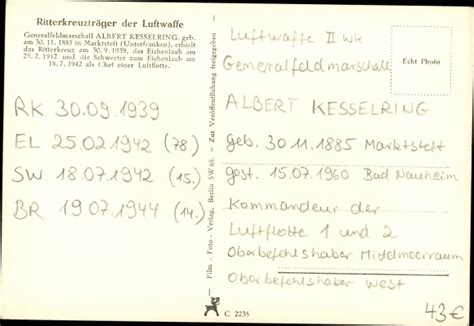 Ritterkreuzträger der Luftwaffe
Generalfeldmarschall ALBERT KESSELRING, geb.
am 30. 11. 1885 in Marktsteft (Unterfranken), erhielt
das Ritterkreuz am 30. 9. 1939, das Eichenlaub am
25. 2. 1942 und die Schwerter zum Eichenlaub am
18. 7. 1942 als Chef einer Luftflotte.
RK 30.09.1939
EL 25.02.1942 (78.)
SW 18.07.1942 (15.)
BR 19.07.1944 (14.)
Film - Foto - Verlag, Berlin SW 68. - Zur Veröffentlichung freigegeben
C 2235
Luftwaffe II WK
Generalfeldmarschall
ALBERT KESSELRING
geb. 30.11.1885 Marktsteft
gest. 15.07.1960 Bad Nauheim
Kommandeur der
Luftflotte 1 und 2
Oberbefehlshaber Mittelmeerraum
Oberbefehlshaber West
Echt Photo
43€